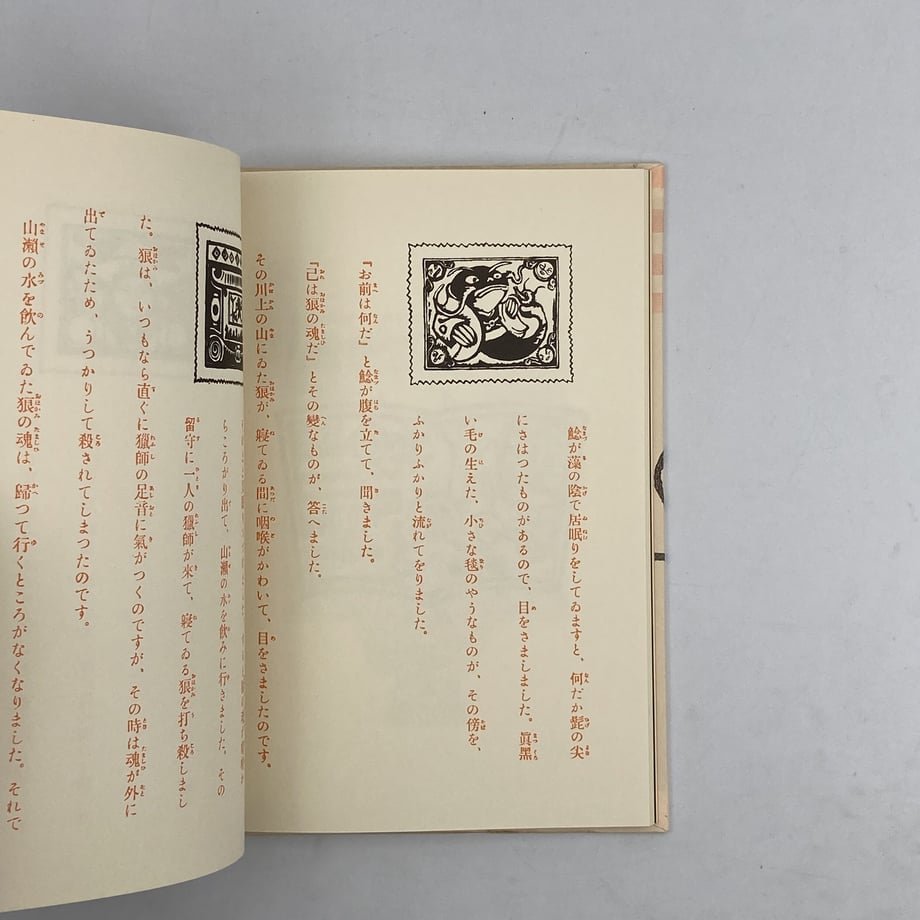 鯰が藻の陰で居眠りをしてゐますと、何だか髭の尖
にさはつたものがあるので、目をさましました。眞黑
い毛の生えた、小さな毬のやうなものが、その傍を、
ふかりふかりと流れてをりました。
『お前は何だ』と鯰が腹を立てて、聞きました。
『己は狼の魂だ』とその變なものが、答へました。
その川上の山にゐた狼が、寢てゐる間に咽喉がかわいて、目をさましたのです。
らころがり出て、山瀬の水を飲みに行きました。その
留守に一人の獵師が來て、寢てゐる狼を打ち殺しまし
た。狼は、いつもなら直ぐに獵師の足音に氣がつくのですが、その時は魂が外に
出てゐたため、うつかりして殺されてしまつたのです。
山瀬の水を飲んでゐた狼の魂は、歸つて行くところがなくなりました。それで